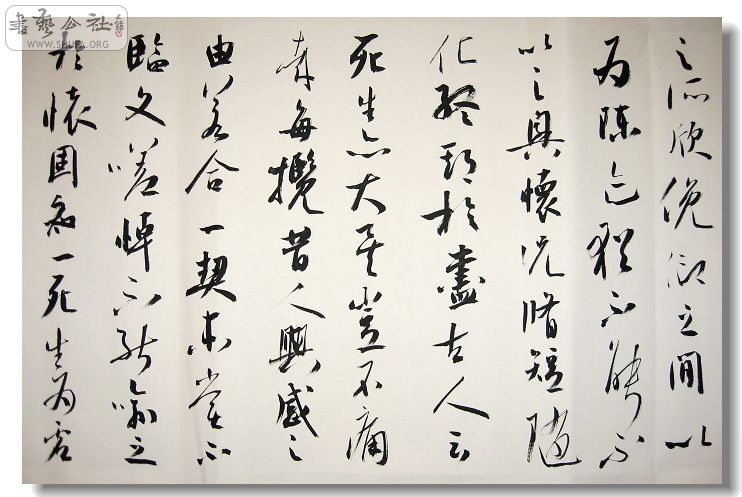 之所欣俛仰之間以
為陳迹猶不能不
以之興懷況脩短隨
化終期於盡古人云
死生亦大矣豈不痛
哉每攬昔人興感之
由若合一契未嘗不
臨文嗟悼不能喻之
於懷固知一死生為虛
書藝公社
WWW.SHUFA.ORG